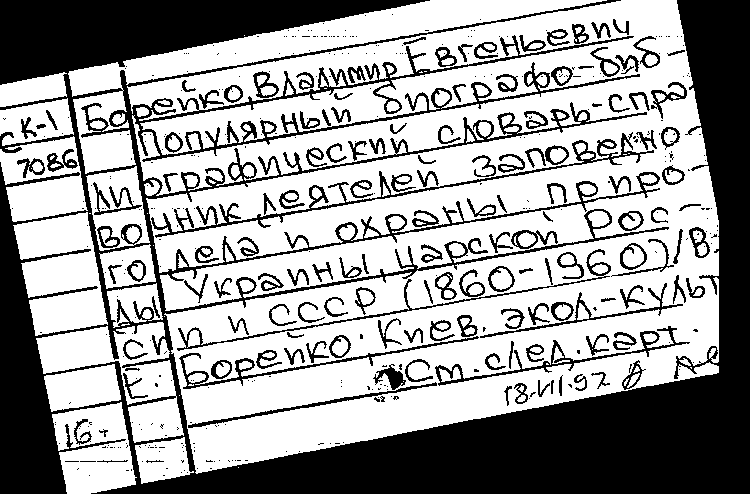 Борейко, Владимир Евгеньевич
СК-1
7086
Популярный биографо-биб-
лиографический словарь-спра-
вочник деятелей заповедно-
го дела и охраны приро-
ды Украины, царской Рос-
сии и СССР (1860-1960)/В.
Е. Борейко. Киев. экол.-культ
См. след. карт.
16-
18.VII.97